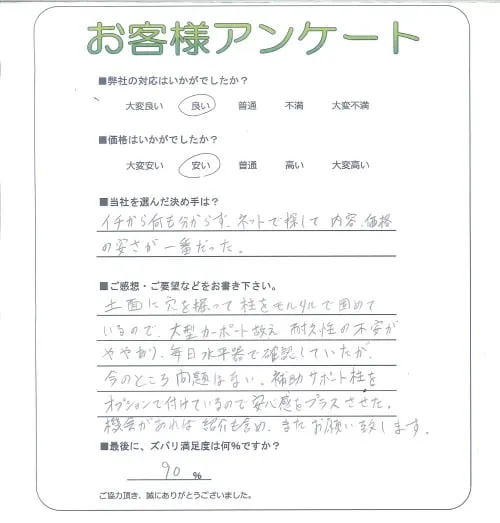 お客様アンケート
■弊社の対応はいかがでしたか?
大変良い 良い 普通 不満 大変不満
■価格はいかがでしたか?
大変安い 安い 普通 高い 大変高い
■当社を選んだ決め手は?
イチから何も分からず、ネットで探して 内容、価格
の安さが一番だった。
■ご感想・ご要望などをお書き下さい。
土面に穴を掘って柱をモルタルで固めて
いるので、大型カーポート故え 耐久性の不安が
ややあり、毎日水平器で確認していたが、
今のところ問題はない。補助サポート柱を
オプションで付けているので安心感をプラスさせた。
機会があれば 紹介も含め、またお願い致します。
■最後に、ズバリ満足度は何%ですか?
90 %
ご協力頂き、誠にありがとうございました。